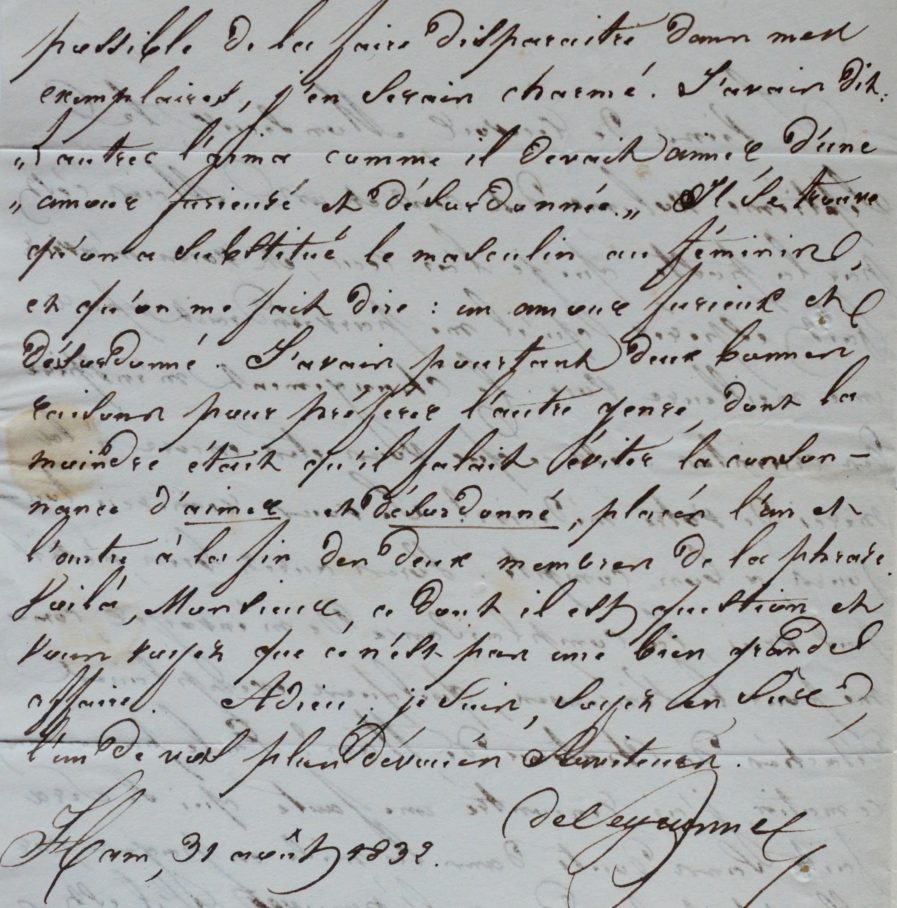 possible de la faire disparaitre dans mes
exemplaires, j'en serais charmé. J'avais dit:
„ l'aima comme il devait aimer d'une
„ amour furieuse et désordonnée.„ Il se trouve
qu'on a substitué le masculin au féminin,
et qu'on me fait dire: un amour furieux et
désordonné. J'avais pourtant deux bonnes
raisons pour préférer l'autre genre, dont la
moindre était qu'il falait éviter la conson-
nance d'aimer et désordonné, placés l'un et
l'autre à la fin des deux membres de la phrase.
Voilà, Monsieur, ce dont il est question et
vous voyez que ce n'est pas une bien grande
affaire. Adieu, je suis, soyez en sûr,
l'un de vos plus dévoués serviteurs.
de Peyronnet
Ham, 31 août 1832.